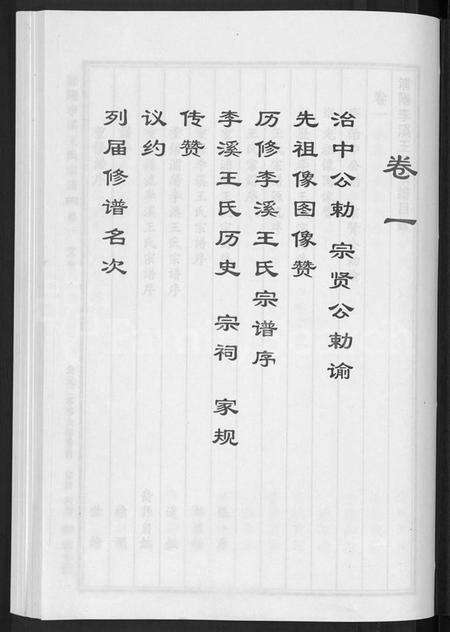 卷一
治中公勅 宗贤公勅谕
先祖像图像赞
历修李溪王氏宗谱序
李溪王氏历史 宗祠 家规
传赞
议约
列届修谱名次